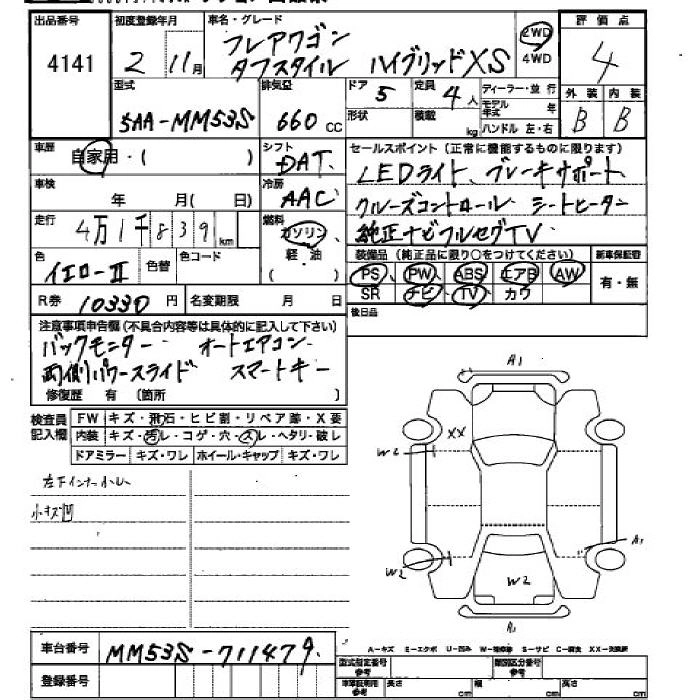 出品番号
4141
初度登録年月
2年 11月
車名・グレード
フレアワゴン
タフスタイル ハイブリッドXS
2WD
4WD
評価点
4
外装 内装
B B
型式
5AA-MM53S
排気量
660 CC
ドア 5
定員 4 人
ディーラー・並行
モデル年式 年
形状
積載 kg
ハンドル 左・右
車歴
自家用・( )
シフト
DAT
セールスポイント(正常に機能するものに限ります)
LEDライト、ブレーキサポート
クルーズコントロール シートヒーター
純正ナビフルセグTV
車検
年 月( 日)
冷房
AAC
走行
4万1千839 km
燃料
ガソリン、
軽・油
( )
色
イエローII
色替
色コード
装備品(純正品に限り○をつけてください)
新車保証書
PS PW ABS エアB AW
SR ナビ TV カワ
有・無
R券 10330円
名変期限 月 日
後日品
注意事項申告欄(不具合内容等は具体的に記入して下さい)
バックモニター オートエアコン
両側パワースライド スマートキー
修復歴 有 〔箇所 〕
検査員記入欄
FW キズ・飛石・ヒビ割・リペア跡・X要
内装 キズ・汚レ・コゲ・穴・スレ・ヘタリ・破レ
ドアミラー キズ・ワレ ホイール・キャップ キズ・ワレ
左下インナー小ヒ
小キズ凹
A1
XX
W2
A1
W2
W2
A1
車台番号
MM53S-711479
登録番号
A-キズ E-エクボ U-凹み W-補修跡 S-サビ C-腐食 XX-交換済
型式指定番号 参考
類別区分番号 参考
車車証明用 参考
長さ cm
幅 cm
高さ cm